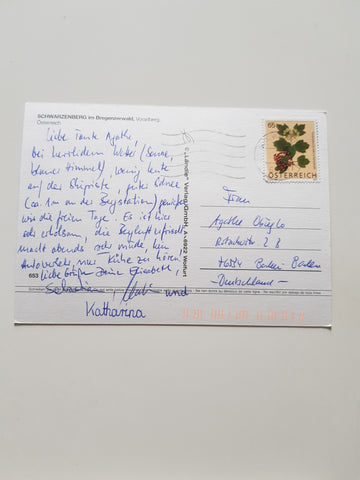 SCHWARZENBERG im Bregenzerwald, Vorarlberg,
Österreich
Liebe Tante Agathe,
bei herrlichem Wetter (Sonne,
blauer Himmel), wenig Leute
auf der Skipiste, guter Schnee
(ca. 1m an der Bergstation) genießen
wir die freien Tage. Es ist hier
sehr erholsam, die Bergluft
macht abends sehr müde, kein
Autoverkehr, nur Kühe zu hören!
Liebe Grüße Deine Elisabeth,
Sebastian, und
Katharina
653
Verlag GmbH, A-6922 Wolfurt
65
ÖSTERREICH
Frau
Agathe
28
Baden-Baden
-Deutschland-